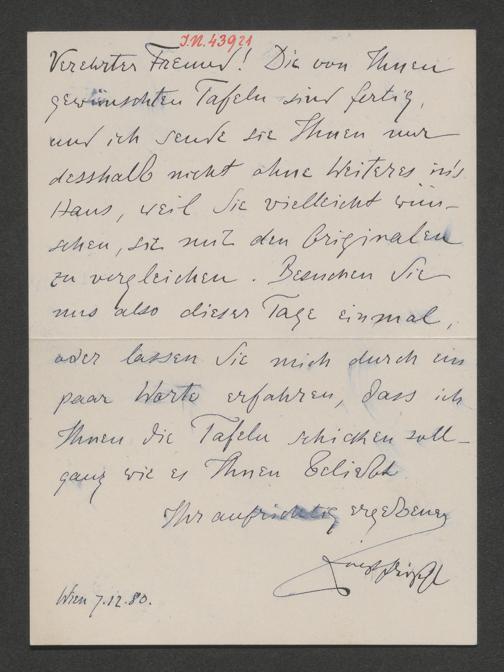 I.N. 43921
Verehrter Freund! Die von Ihnen
gewünschten Tafeln sind fertig,
und ich sende sie Ihnen nur
desshalb nicht ohne Weiteres in's
Haus, weil Sie vielleicht wün-
schen, sie mit den Originalen
zu vergleichen. Besuchen Sie
uns also dieser Tage einmal,
oder lassen Sie mich durch ein
paar Worte erfahren, dass ich
Ihnen die Tafeln schicken soll –
ganz wie es Ihnen beliebt
Ihr aufrichtig ergebener
Wien 7.12.80.